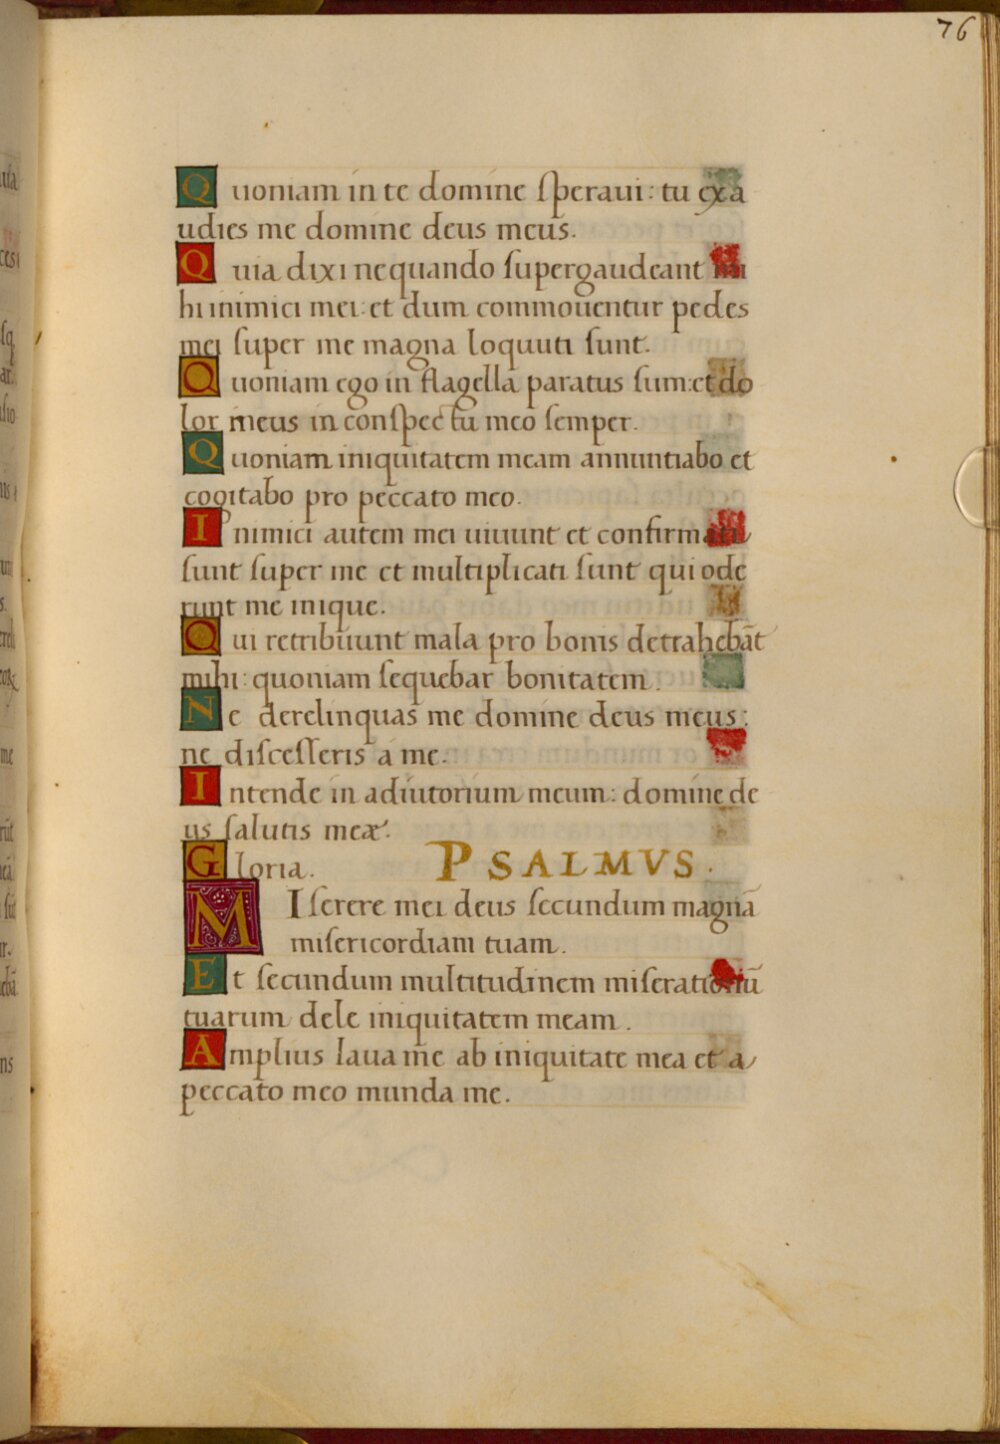 76
Quoniam in te domine speraui: tu exa
udies me domine deus meus.
Quia dixi nequando supergaudeant mi
hi inimici mei: et dum commouentur pedes
mei super me magna loquuti sunt.
Quoniam ego in flagella paratus sum: et do
lor meus in conspectu meo semper.
Quoniam iniquitatem meam annuntiabo et
cogitabo pro peccato meo.
Inimici autem mei uiuunt et confirmati
sunt super me et multiplicati sunt qui ode
runt me inique.
Qui retribuunt mala pro bonis detrahebāt
mihi: quoniam sequebar bonitatem.
Ne derelinquas me domine deus meus:
ne discesseris a me.
Intende in adiutorium meum: domine de
us salutis meæ.
Gloria. PSALMVS.
MIserere mei deus secundum magnā
misericordiam tuam.
Et secundum multitudinem miserationū
tuarum dele iniquitatem meam.
Amplius laua me ab iniquitate mea et a
peccato meo munda me.